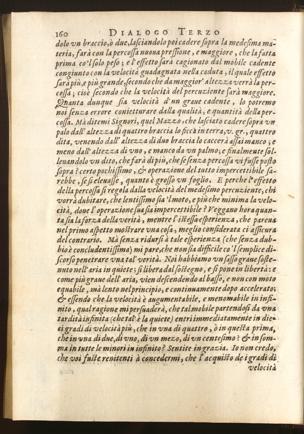 160 DIALOGO TERZO
dolo un braccio, ò due, lasciandolo poi cadere sopra la medesima ma-
teria, farà con la percossa nuova pressione, e maggiore, che la fatta
prima co'l solo peso; e l'effetto sarà cagionato dal mobile cadente
congiunto con la velocità guadagnata nella caduta, il quale effetto
sarà più, e più grande secondo che da maggior'altezza verrà la per-
cossa; cioè secondo che la velocità del percuziente sarà maggiore.
Quanta dunque sia la velocità d'un grave cadente, lo potremo
noi senza errore conietturare dalla qualità, e quantità della per-
cossa. Mà ditemi Signori, quel Mazzo, che lasciato cadere sopra un
palo dall'altezza di quattro braccia lo ficca in terra, v. gr., quattro
dita, venendo dall'altezza di due braccia lo caccerà assai manco, e
meno dall'altezza di uno, e manco da un palmo; e finalmente sol-
levandolo un dito, che farà di più, che se senza percossa vi fusse posto
sopra? certo pochissimo, & operazione del tutto impercettibile sa-
rebbe, se si elevasse, quanto è grosso un foglio. E perche l'effetto
della percossa si regola dalla velocità del medesimo percuziente, chi
vorrà dubitare, che lentissimo sia 'l moto, e più che minima la velo-
cità, dove l'operazione sua sia impercettibile? Veggano hora quan-
ta sia la forza della verità, mentre l'istessa esperienza, che pareva
nel primo aspetto mostrare una cosa, meglio considerata ci assicura
del contrario. Mà senza ridursi à tale esperienza (che senza dub-
bio è concludentissima) mi pare, che non sia difficile co'l semplice di-
scorso penetrare una tal verità. Noi habbiamo un sasso grave soste-
nuto nell'aria in quiete; si libera dal sostegno, e si pone in libertà; e
come più grave dell'aria, vien descendendo al basso, e non con moto
equabile, mà lento nel principio, e continuamente dopo accelerato;
& essendo che la velocità è augumentabile, e menomabile in infi-
nito, qual ragione mi persuaderà, che tal mobile partendosi da una
tardità infinita (che tal' è la quiete) entri immediatamente in die-
ci gradi di velocità più, che in una di quattro, ò in questa prima,
che in una di due, di uno, di un mezo, di un centesimo? & in som-
ma in tutte le minori in infinito? Sentite in grazia. Io non credo,
che voi fuste renitenti à concedermi, che l'acquisto de i gradi di
velocità